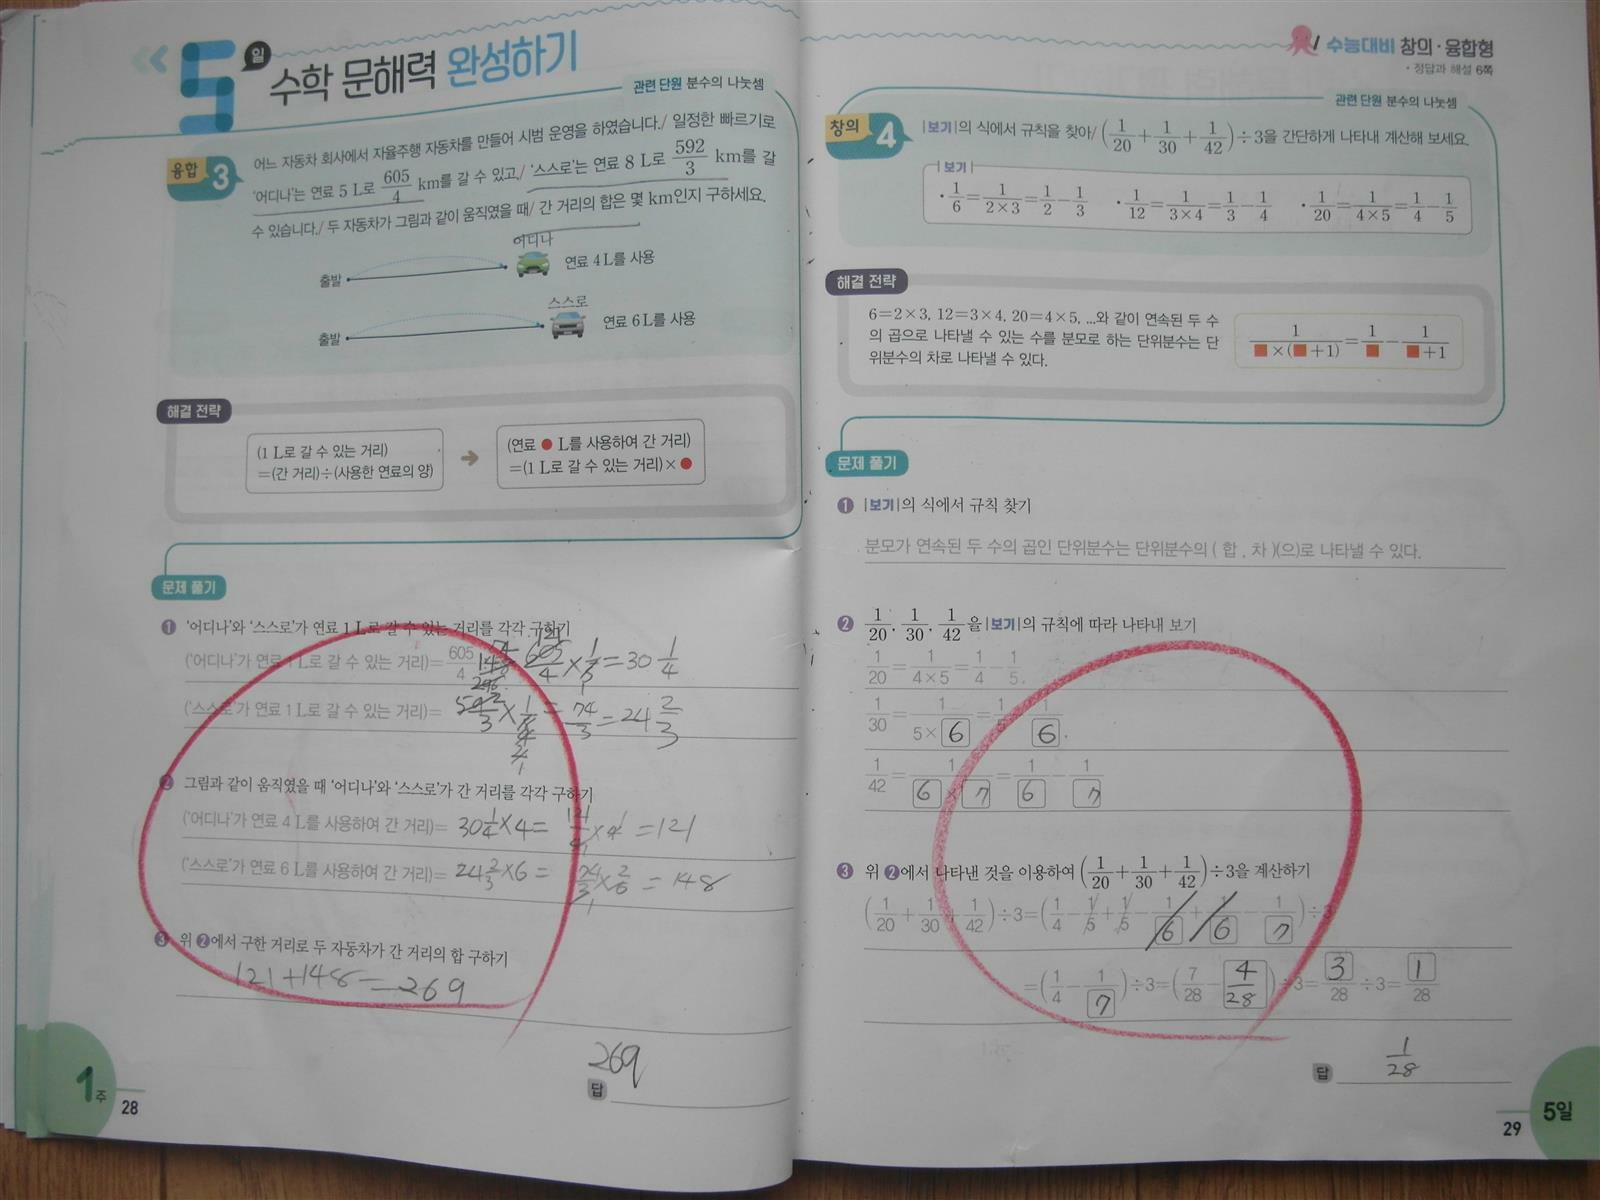 5일 수학 문해력 완성하기
관련 단원 분수의 나눗셈
융합 3
어느 자동차 회사에서 자율주행 자동차를 만들어 시범 운영을 하였습니다./ 일정한 빠르기로
'어디나'는 연료 5 L로 605/4 km를 갈 수 있고,/ '스스로'는 연료 8 L로 592/3 km를 갈
수 있습니다./ 두 자동차가 그림과 같이 움직였을 때/ 간 거리의 합은 몇 km인지 구하세요.
어디나
출발 연료 4 L를 사용
스스로
출발 연료 6 L를 사용
해결 전략
(1 L로 갈 수 있는 거리)
=(간 거리)÷(사용한 연료의 양)
➔
(연료 ● L를 사용하여 간 거리)
=(1 L로 갈 수 있는 거리)×●
문제 풀기
1 '어디나'와 '스스로'가 연료 1 L로 갈 수 있는 거리를 각각 구하기
('어디나'가 연료 1 L로 갈 수 있는 거리)= 605/4 605/4 × 1/5 = 30 1/4
('스스로'가 연료 1 L로 갈 수 있는 거리)= 592/3 × 1/8 = 74/3 = 24 2/3
2 그림과 같이 움직였을 때 '어디나'와 '스스로'가 간 거리를 각각 구하기
('어디나'가 연료 4 L를 사용하여 간 거리)= 30 1/4 × 4 = 121/4 × 4 = 121
('스스로'가 연료 6 L를 사용하여 간 거리)= 24 2/3 × 6 = 74/3 × 6 = 148
3 위 2에서 구한 거리로 두 자동차가 간 거리의 합 구하기
121+148=269
답 269
1주 28
수능대비 창의·융합형
• 정답과 해설 6쪽
관련 단원 분수의 나눗셈
창의 4
|보기|의 식에서 규칙을 찾아/ (1/20+1/30+1/42)÷3을 간단하게 나타내 계산해 보세요.
|보기|
· 1/6=1/2×3=1/2-1/3 · 1/12=1/3×4=1/3-1/4 · 1/20=1/4×5=1/4-1/5
해결 전략
6=2×3, 12=3×4, 20=4×5, ...와 같이 연속된 두 수
의 곱으로 나타낼 수 있는 수를 분모로 하는 단위분수는 단
위분수의 차로 나타낼 수 있다.
1/■×(■+1)=1/■-1/■+1
문제 풀기
1 |보기|의 식에서 규칙 찾기
분모가 연속된 두 수의 곱인 단위분수는 단위분수의 ( 합 , 차 )(으)로 나타낼 수 있다.
2 1/20, 1/30, 1/42을 |보기|의 규칙에 따라 나타내 보기
1/20=1/4×5=1/4-1/5.
1/30=1/5×6=1/5-1/6.
1/42=1/6×7=1/6-1/7
3 위 2에서 나타낸 것을 이용하여 (1/20+1/30+1/42)÷3을 계산하기
(1/20+1/30+1/42)÷3=(1/4-1/5+1/5-1/6+1/6-1/7)÷3
=(1/4-1/7)÷3=(7/28-4/28)÷3=3/28÷3=1/28
답 1/28
29 5일